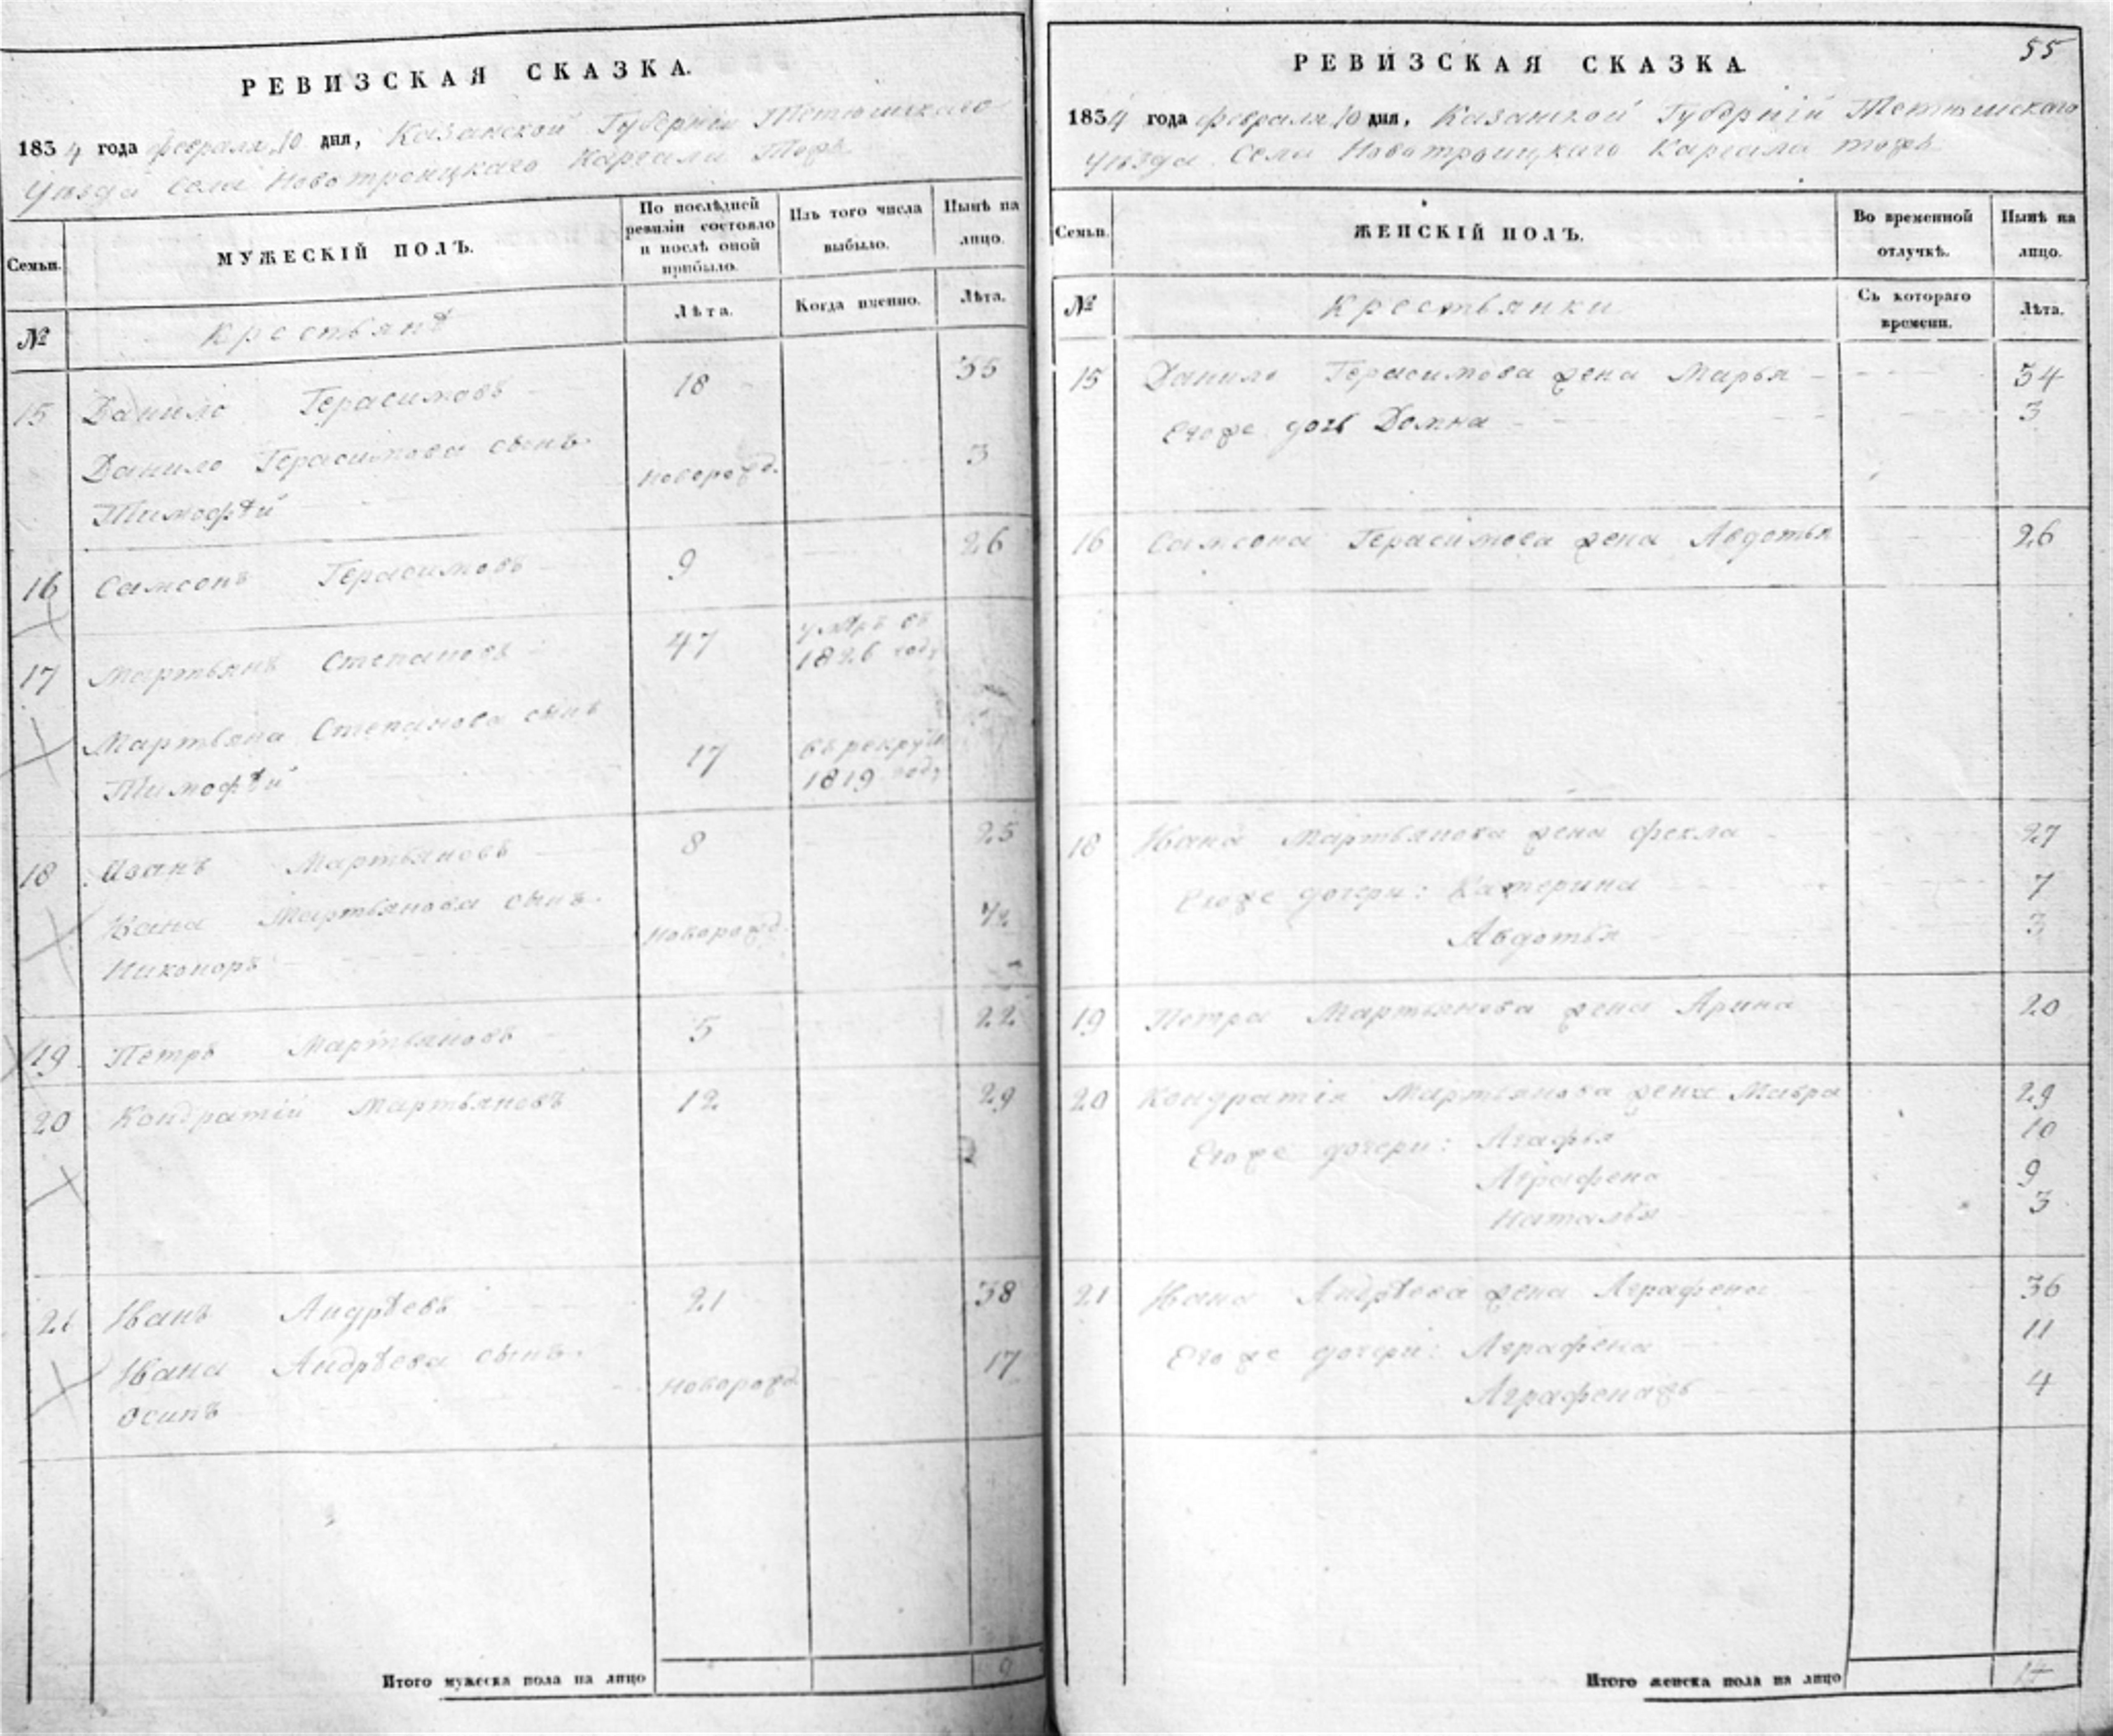 РЕВИЗСКАЯ СКАЗКА.
1834 года февраля 10 дня, Казанской Губернїи Тетюшскаго
Уезда Села Новотроицкаго Каргала тожъ
Семьи.
МУЖЕСКІЙ ПОЛЪ.
По послѣдней ревизіи состояло и послѣ оной прибыло.
Изъ того числа выбыло.
Нынѣ на лицо.
№
Крестьянѣ
Лѣта.
Когда именно.
Лѣта.
15 Данило Герасимовъ 18 35
Данило Герасимова сынъ
Тимофѣй Новорожд. 3
16 Самсонъ Герасимовъ 9 26
17 Мартьянъ Степановъ 47 умѣръ въ 1826 году
Мартьяна Степанова сынъ
Тимофѣй 17 въ рекруты 1819 году
18 Иванъ Мартьяновъ 8 25
Ивана Мартьянова сынъ
Никоноръ Новорожд. 1/2
19 Петръ Мартьяновъ 5 22
20 Кондратїй Мартьяновъ 12 29
21 Иванъ Андрѣевъ 21 38
Ивана Андрѣева сынъ
Осипъ Новорожд 17
Итого мужеска пола на лицо 9
55
РЕВИЗСКАЯ СКАЗКА.
1834 года февраля 10 дня, Казанской Губернїй Тетюшскаго
Уезда Села Новотроицкаго Каргала тожъ
Семьи.
ЖЕНСКІЙ ПОЛЪ.
Во временной отлучкѣ.
Нынѣ на лицо.
№
Крестьянки
Съ котораго времени.
Лѣта.
15 Данило Герасимова жена Марья 34
Его же дочь Домна 3
16 Самсона Герасимова жена Авдотья 26
18 Ивана Мартьянова жена Фекла 27
Его же дочери: Катерина 7
Авдотья 3
19 Петра Мартьянова жена Арина 20
20 Кондратїя Мартьянова жена Мавра 29
Его же дочери: Агафья 10
Аграфена 9
Наталья 3
21 Ивана Андрѣева жена Аграфена 36
Его же дочери: Аграфена 11
Аграфенажъ 4
Итого женска пола на лицо